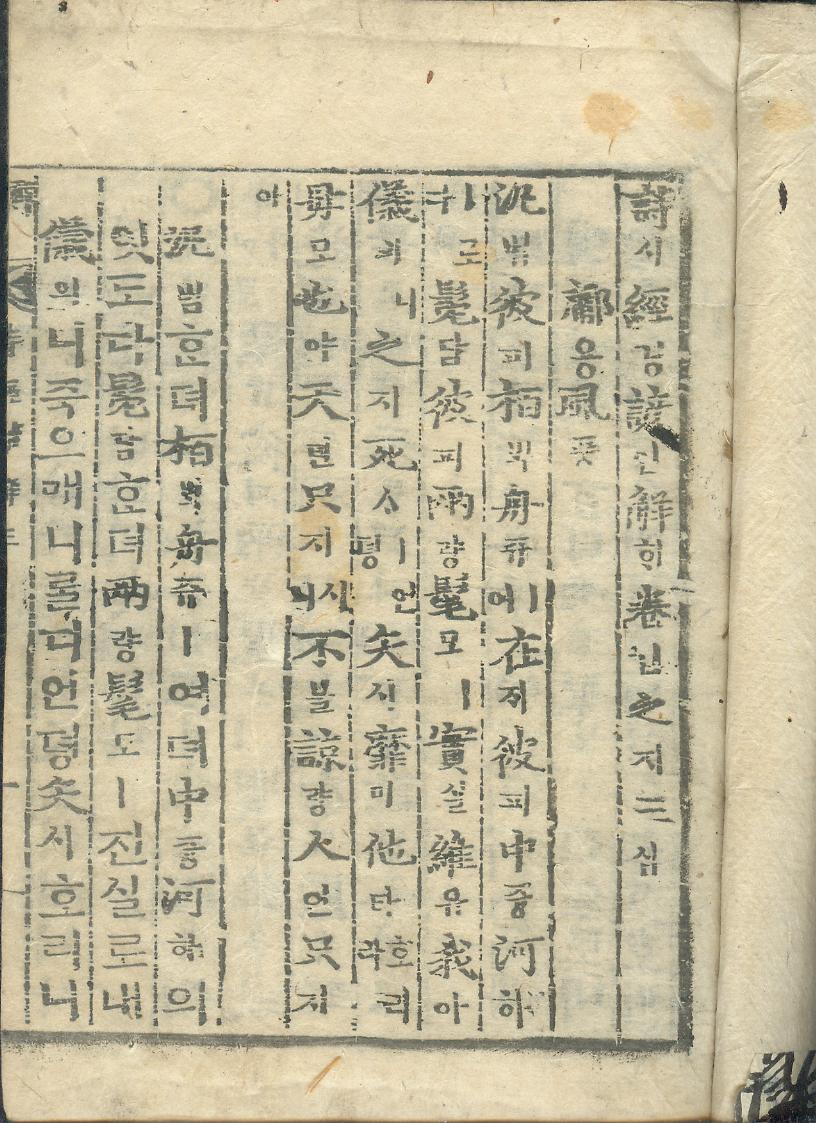 詩시經경諺언解ᄒᆡ卷권之지三삼
鄘용風풍
汎범彼피栢ᄇᆡᆨ舟쥬ㅣ여在ᄌᆡ彼피中듕河하
ㅣ로다髧담彼피兩량髦모ㅣ實실維유我아
儀의니之지死ᄉᆞㅣ언뎡矢시靡미他타호리라
毋모也야天텬只지시니不블諒량人인只지
아
汎범ᄒᆞᆫ뎌栢ᄇᆡᆨ舟쥬ㅣ여뎌中듕河하의
잇도다髧담ᄒᆞᆫ뎌兩량髦모ㅣ진실로내
儀의니죽으매니를디언뎡矢시호리니